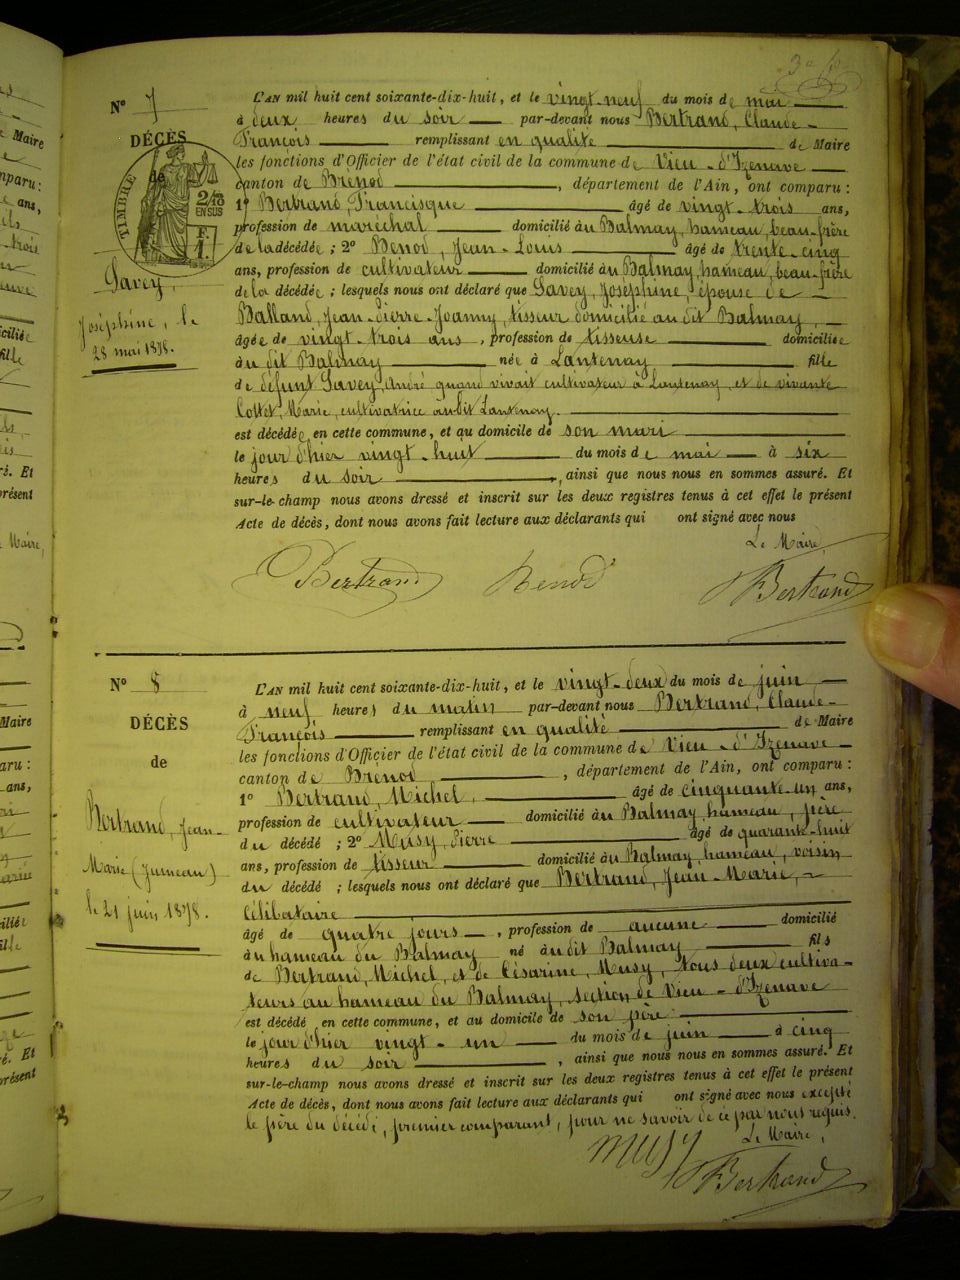 N° 7
DÉCÈS
de
TIMBRE
2/10
EN SUS
Gavey,
Joséphine, le
28 mai 1878.
L'AN mil huit cent soixante-dix-huit, et le vingt-neuf du mois de mai
à deux heures du soir par-devant nous Bertrand, Claude-
François remplissant en qualité de Maire
les fonctions d'Officier de l'état civil de la commune de Vieu-d'Izenave
canton de Brenod, département de l'Ain, ont comparu :
1° Bertrand, Francisque âgé de vingt-trois ans,
profession de maréchal domicilié au Balmay, hameau, beau-frère
de la décédée ; 2° Benod, Jean-Louis âgé de trente-cinq
ans, profession de cultivateur domicilié au Balmay, hameau, beau-frère
de la décédée ; lesquels nous ont déclaré que Gavey, Joséphine, épouse de
Balland, Jean-Pierre-Joanny, tisseur domicilié au dit Balmay,
âgée de vingt-trois ans, profession de tisseuse domiciliée
au dit Balmay née à Lantenay fille
de défunt Gavey, André quand vivait cultivateur à Lantenay, et de vivante
Cottet, Marie, cultivatrice audit Lantenay.
est décédée en cette commune, et au domicile de son mari
le jour d'hier vingt-huit du mois de mai à six
heures du soir, ainsi que nous nous en sommes assuré. Et
sur-le-champ nous avons dressé et inscrit sur les deux registres tenus à cet effet le présent
Acte de décès, dont nous avons fait lecture aux déclarants qui ont signé avec nous
Le Maire,
Bertrand Benod Bertrand
N° 8
DÉCÈS
de
Bertrand, Jean-
Marie (Jumeau)
le 21 juin 1878.
L'AN mil huit cent soixante-dix-huit, et le vingt-deux du mois de juin
à neuf heures du matin par-devant nous Bertrand, Claude-
François remplissant en qualité de Maire
les fonctions d'Officier de l'état civil de la commune de Vieu-d'Izenave
canton de Brenod, département de l'Ain, ont comparu :
1° Bertrand, Michel, âgé de cinquante-un ans,
profession de cultivateur domicilié au Balmay hameau, père
du décédé ; 2° Musy, Pierre âgé de quarante-huit
ans, profession de tisseur domicilié au Balmay, hameau, voisin
du décédé ; lesquels nous ont déclaré que Bertrand, Jean-Marie,
célibataire
âgé de quatre jours, profession de aucune domicilié
au hameau du Balmay né audit Balmay fils
de Bertrand, Michel, et de Césarine, Musy, tous deux cultiva-
teurs au hameau du Balmay, section de Vieu-d'Izenave
est décédé en cette commune, et au domicile de son père
le jour d'hier vingt-un du mois de juin à cinq
heures du soir, ainsi que nous nous en sommes assuré. Et
sur-le-champ nous avons dressé et inscrit sur les deux registres tenus à cet effet le présent
Acte de décès, dont nous avons fait lecture aux déclarants qui ont signé avec nous excepté
le père du décédé, premier comparant, pour ne savoir de ce par nous requis.
Le Maire,
Musy Bertrand